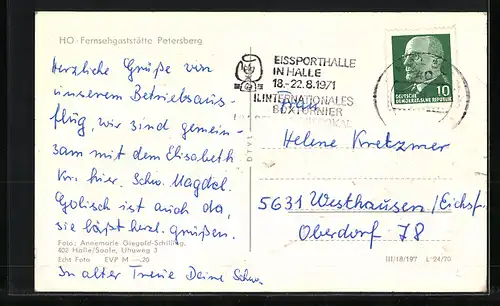 HO - Fernsehgaststätte Petersberg
Herzliche Grüße von
unserem Betriebsaus-
flug, wir sind gemein-
sam mit dem Elisabeth
Kr. hier. Schw. Magdal.
Golisch ist auch da,
sie läßt herzl. grüßen.
Foto: Annemarie Giegold-Schilling,
402 Halle/Saale, Uhuweg 3
Echt Foto EVP M —,20
In alter Treue Deine Schw.
EISSPORTHALLE
IN HALLE
18.-22.8.1971
II. INTERNATIONALES
BOXTURNIER
10
DEUTSCHE
DEMOKRATISCHE REPUBLIK
Frau
Helene Kretzmer
5631 Westhausen/Eichsf.
Oberdorf 78
III/18/197 L 24/70